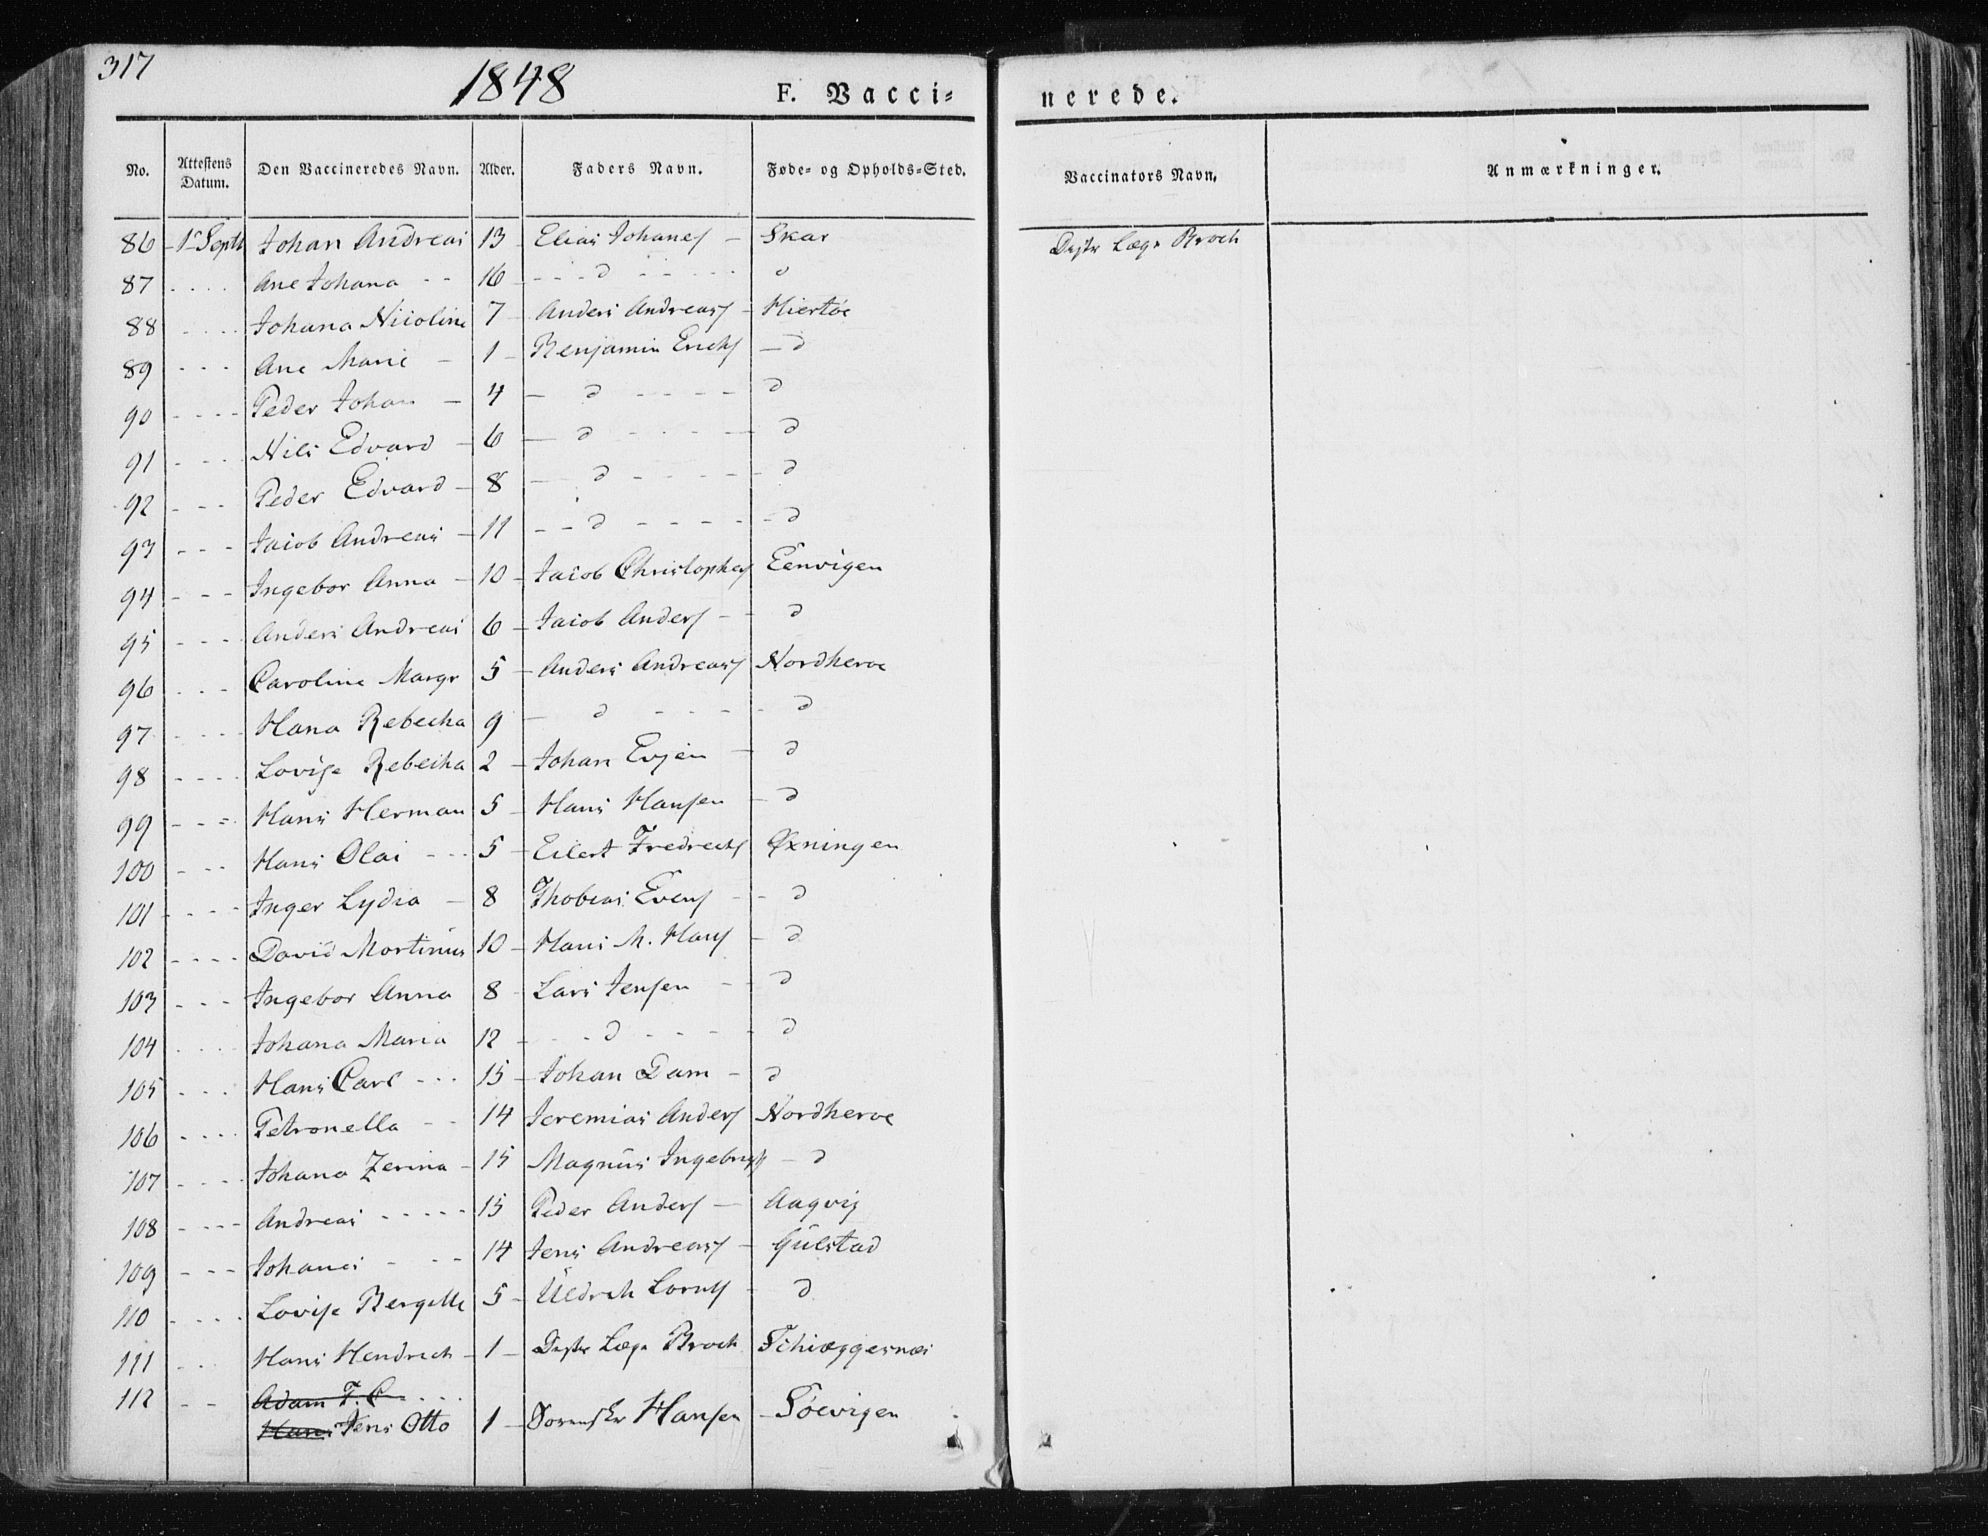 317
1848
F. Vacci-
nerede.
No. Attestens Datum. Den Vaccineredes Navn. Alder. Faders Navn. Føde- og Opholds-Sted. Vaccinators Navn. Anmærkninger.
86 - 1e Septb Johan Andreas 13 Elias Johanes - Skar Distr Læge Broch
87 . . . . Ane Johana - - 16 - - - d - - - - - d
88 - - - - Johana Nicoline 7 - Anders Andreas - Hiertøe
89 - - - Ane Marie - 1 - Benjamin Erichs - d
90 - - - - Peder Johan - 4 - d - - - - d
91 - - - Nils Edvard - 6 - d - - - - d
92 - - - Peder Edvard - 8 - d - - - - d
93 - - - Jacob Andreas - 11 - - d - - - - - d
94 - - - Ingebor Anna - 10 - Jacob Christophes Eenvigen
95 - - - Anders Andreas 6 - Jacob Anders - - d
96 - - - Caroline Margr 5 - Anders Andreas Nordherøe
97 - - - - Hana Rebecka 9 - d - - - - d
98 - - - - Lovise Rebecka 2 - Johan Evjen - d
99 - - - Hans Herman 5 - Hans Hansen - d
100 - - - Hans Olai - - - 5 - Eilert Fredrechs Øxningen
101 - - - - Inger Lydia - 8 Thobias Evens - - d
102 - - - - David Mortinus 10 - Hans M. Hans - d
103 - - - Ingebor Anna 8 - Lars Jensen - - d
104 . . . . Johana Maria 12 - - - d - - - - d
105 . . . Hans Carl - - - 15 - Johan Dam - d
106 . . . . Petronella - - 14 Jeremias Anders Nordherøe
107 - - - - Johana Zerina - 15 Magnus Ingebrigs - d
108 - - - - Andreas - - - - - 15 Peder Anders - Aagvig
109 - - - Johanes - - - 14 Jens Andreas - Gulstad
110 . . . . Lovise Bergitte 5 - Uldrch Lornts - d
111 - - - Hans Hendrich - 1 - Distr Læge Broch Schieggesnæs
112 - - Adam F. C. . . . .
Hans Jens Otto 1 - Sorenskr Hansen - Søevigen